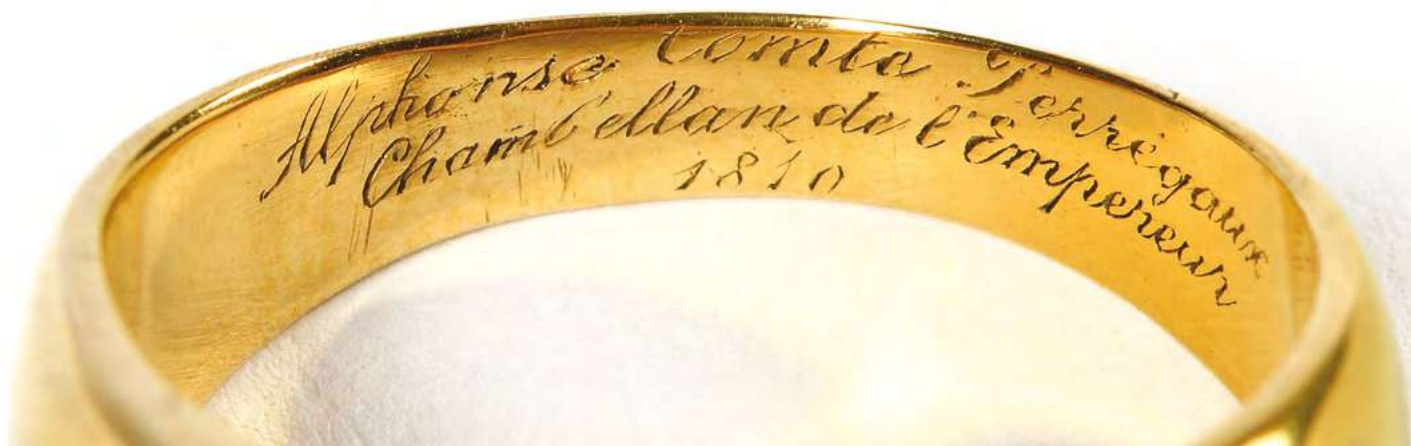 Alphonse Comte Perrégaux
Chambellan de l'Empereur
1810